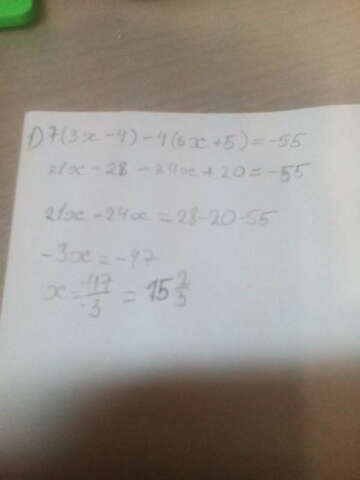 1) 7(3x-4)-4(6x+5)=-55
21x-28-24x+20=-55
21x-24x=28-20-55
-3x=-47
x=-47/-3=15 2/3